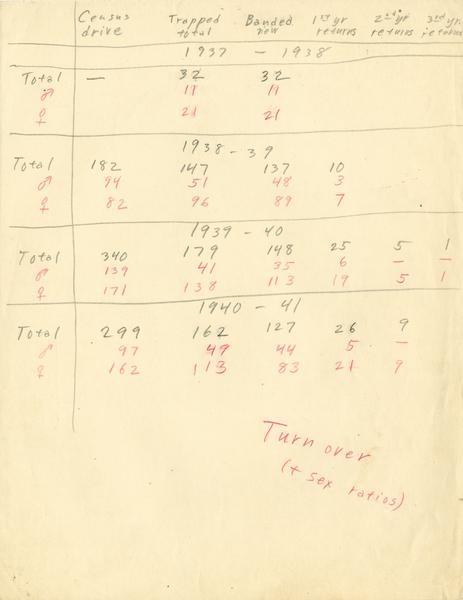 Census drive Trapped total Banded new 1st yr returns 2nd yr returns 3rd yr. returns
1937 - 1938
Total — 32 32
♂ 11 11
♀ 21 21
1938 - 39
Total 182 147 137 10
♂ 94 51 48 3
♀ 82 96 89 7
1939 - 40
Total 340 179 148 25 5 1
♂ 139 41 35 6 — —
♀ 171 138 113 19 5 1
1940 - 41
Total 299 162 127 26 9
♂ 97 49 44 5 —
♀ 162 113 83 21 9
Turn over
(+ sex ratios)